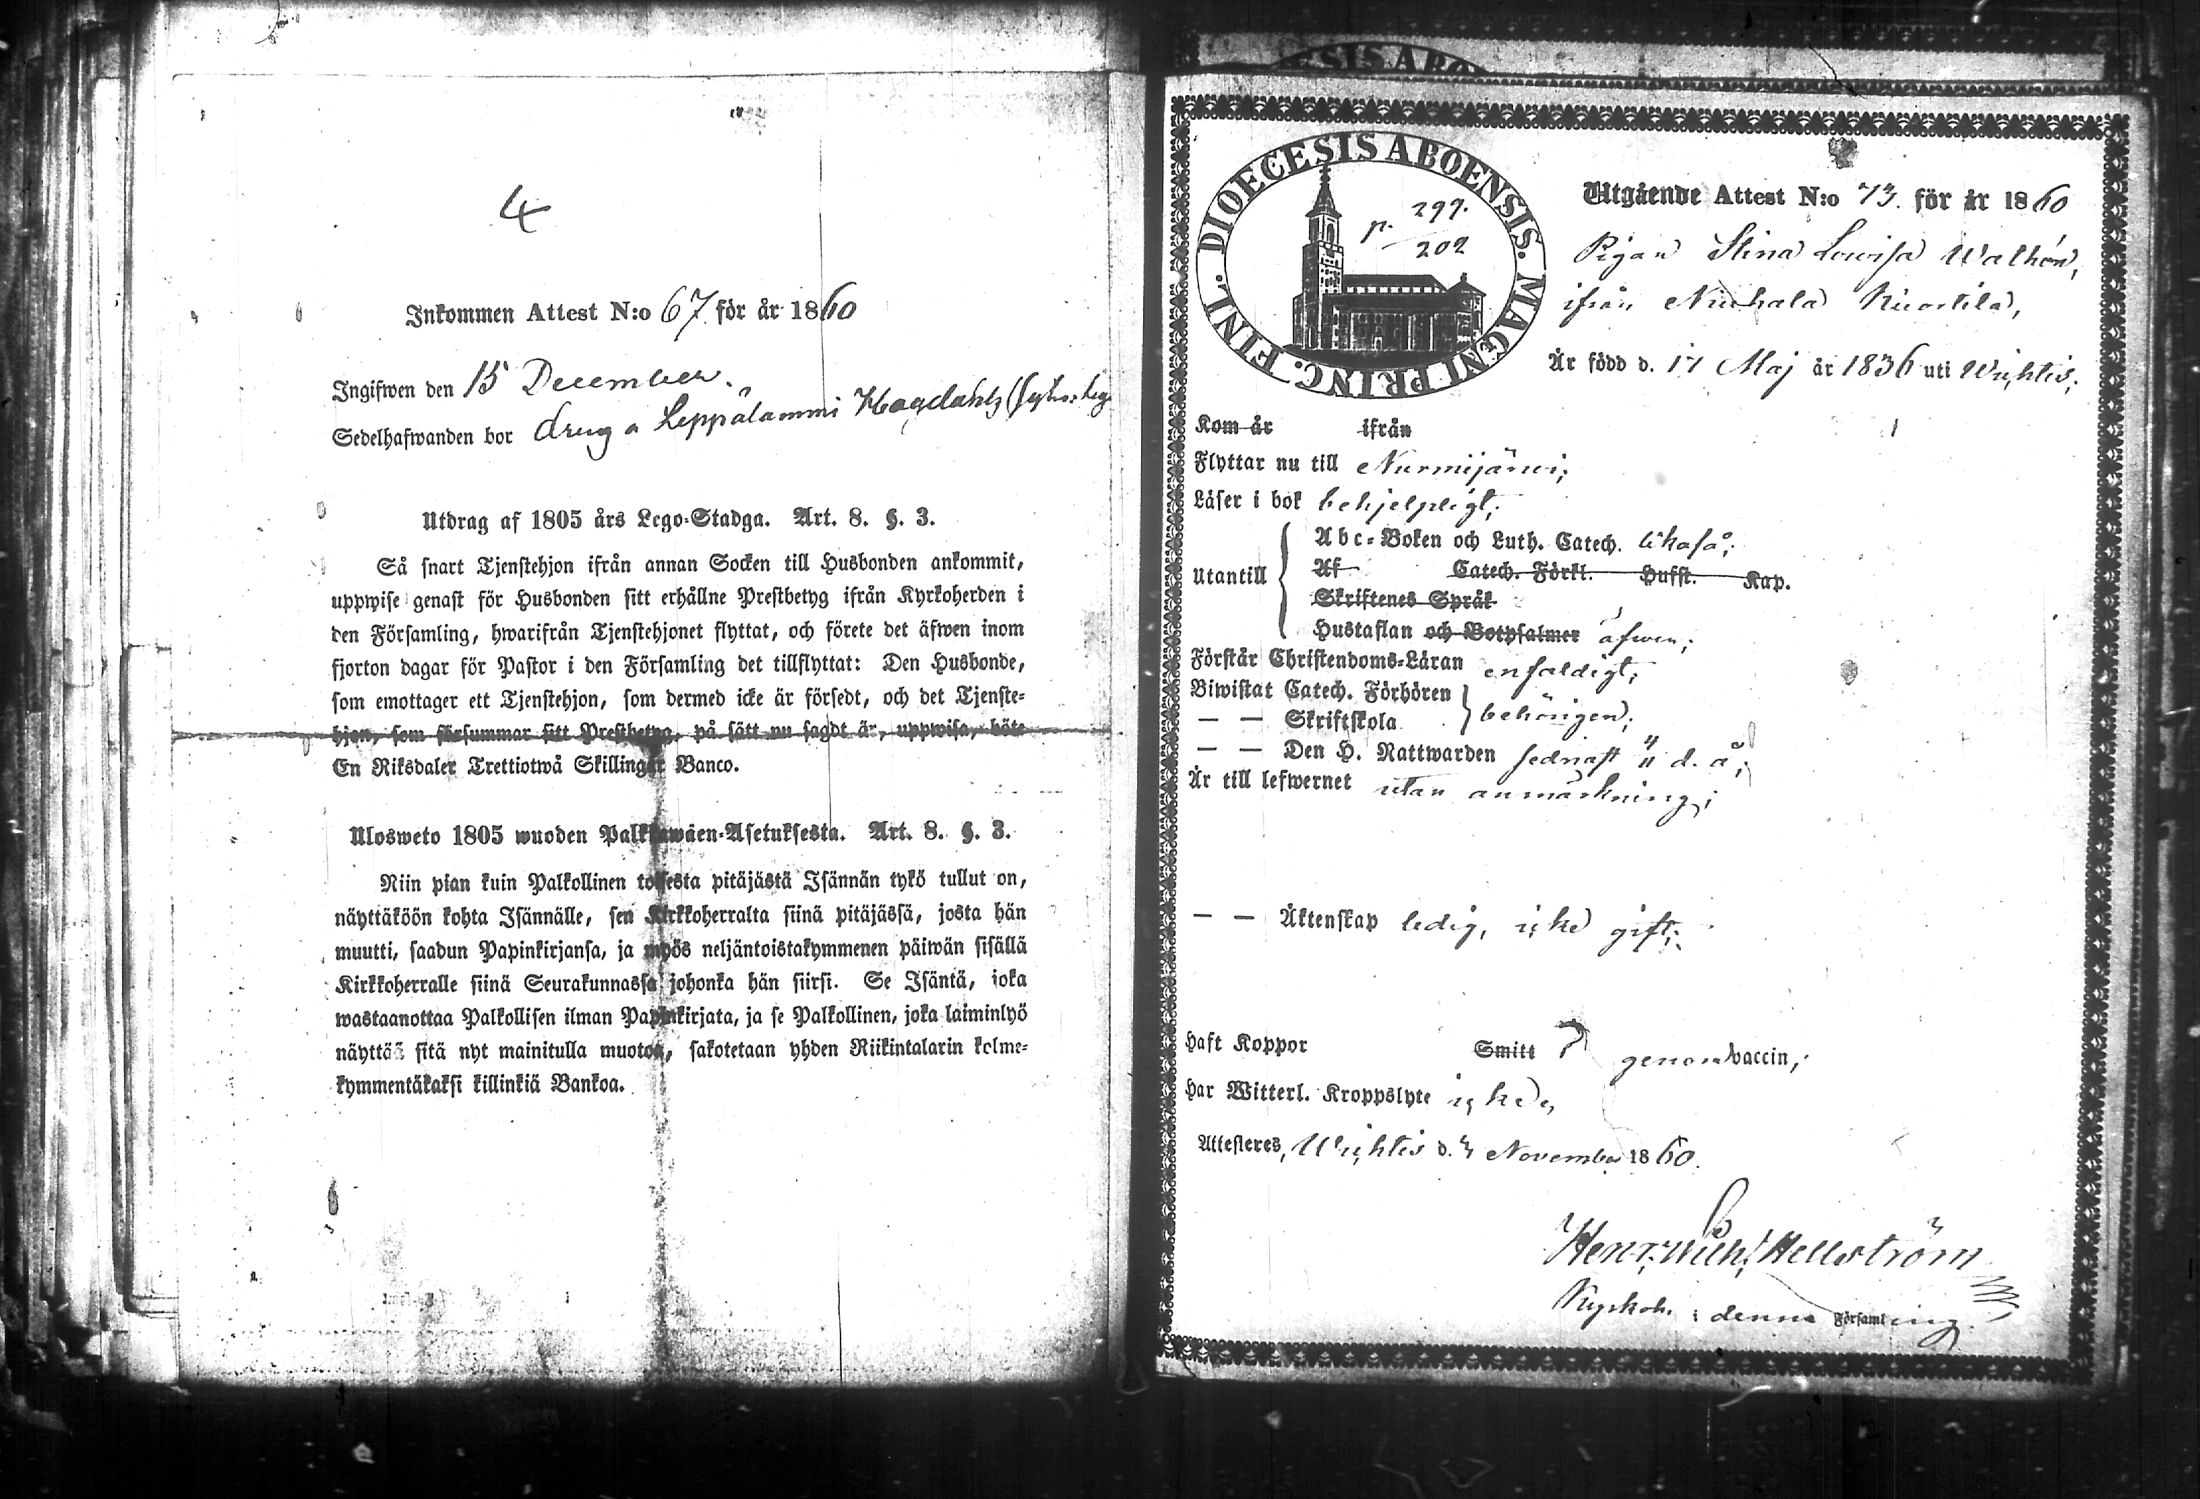 4
Inkommen Attest N:o 67. för år 1860
Ingifwen den 15 December.
Sedelhafwanden bor dreng a Leppälammi
Utdrag af 1805 års Lego-Stadga. Art. 8. §. 3.
Så snart Tjenstehjon ifrån annan Socken till Husbonden ankommit,
uppwise genast för Husbonden sitt erhållne Prestbetyg ifrån Kyrkoherden i
den Församling, hwarifrån Tjenstehjonet flyttat, och förete det äfwen inom
fjorton dagar för Pastor i den Församling det tillflyttat: Den Husbonde,
som emottager ett Tjenstehjon, som dermed icke är försedt, och det Tjenste-
hjon, som försummar sitt Prestbetyg, på sätt nu sagdt är, uppwisa, böte
En Riksdaler Trettiotwå Skillingar Banco.
Ulosweto 1805 wuoden Palkkawäen-Asetuksesta. Art. 8. §. 3.
Niin pian kuin Palkollinen toisesta pitäjästä Isännän tykö tullut on,
näyttäköön kohta Isännälle, sen Kirkkoherralta siinä pitäjässä, josta hän
muutti, saadun Papinkirjansa, ja myös neljäntoistakymmenen päiwän sisällä
Kirkkoherralle siinä Seurakunnassa johonka hän siirsi. Se Isäntä, joka
wastaanottaa Palkollisen ilman Papinkirjata, ja se Palkollinen, joka laiminlyö
näyttää sitä nyt mainitulla muotoa, sakotetaan yhden Riikintalarin kolme-
kymmentäkaksi killinkiä Bankoa.
DIOECESIS ABOENSIS. MAGNI PRINC. FINL.
p. 299.
202
Utgående Attest N:o 73. för år 1860
Pigan Stina Lowisa Walhén,
ifrån Niuhala
Är född d. 17 Maj år 1836 uti Wichtis;
Kom år ifrån
Flyttar nu till Nurmijärwi;
Läser i bok behjelpligt;
Utantill
Abc-Boken och Luth. Catech. likaså;
Af Catech. Förkl. Hufst. Kap.
Skriftenes Språk
Hustaflan och Botpsalmer äfwen;
Förstår Christendoms-Läran enfaldigt;
Biwistat Catech. Förhören
— — Skriftskola behörigen;
— — Den H. Nattwarden sednast d. å;
Är till lefwernet utan anmärkning;
— — Äktenskap ledig, icke gift;
Haft Koppor Smitt genom vaccin;
Har Witterl. Kroppslyte icke,
Attesteres, Wichtis d. 7 November 1860.
Henr. Wilh. Hellström
Kyrkoh. i denna Församling.